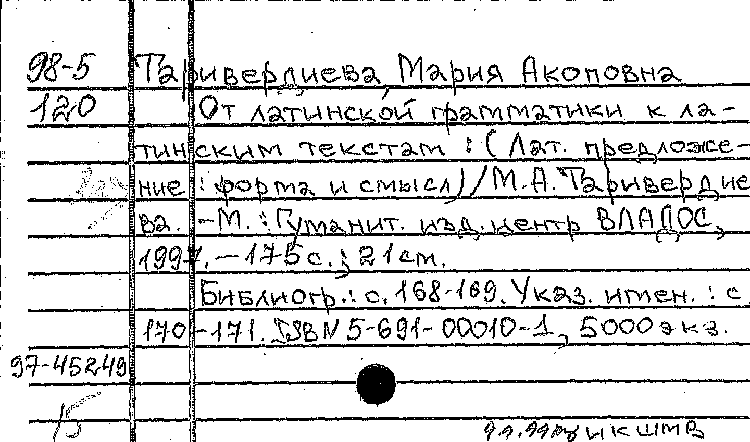 98-5 Таривердиева, Мария Акоповна
120 От латинской грамматики к ла-
тинским текстам : (Лат. предложе-
ние : форма и смысл) / М.А. Таривердие
ва. - М. : Гуманит. изд. центр ВЛАДОС,
1997. - 175 с. ; 21 см.
Библиогр.: с. 168-169. Указ. имен.: с.
170-171. ISBN 5-691-00010-1, 5000 экз.
97-45249
15